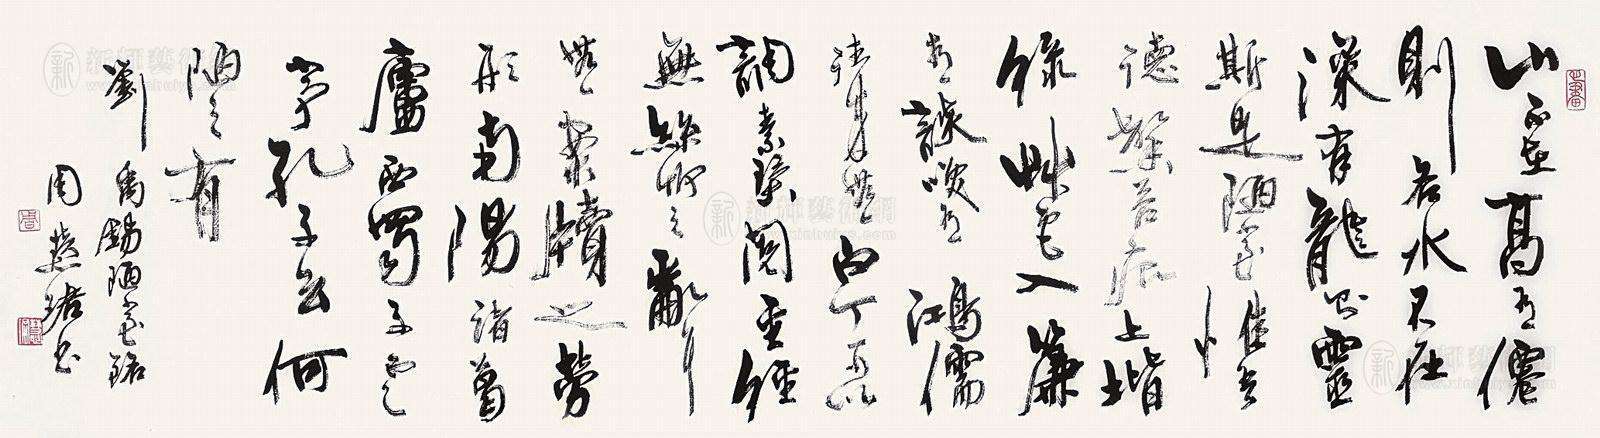 山不在高有僊
則名水不在
深有龍則靈
斯是陋室惟吾
德馨苔痕上堦
綠草色入簾
青談笑有鴻儒
往來無白丁可以
調素琴閱金經
無絲竹之亂耳
無案牘之勞
形南陽諸葛
廬西蜀子雲
亭孔子云何
陋之有
劉禹錫陋室銘
周慧珺书